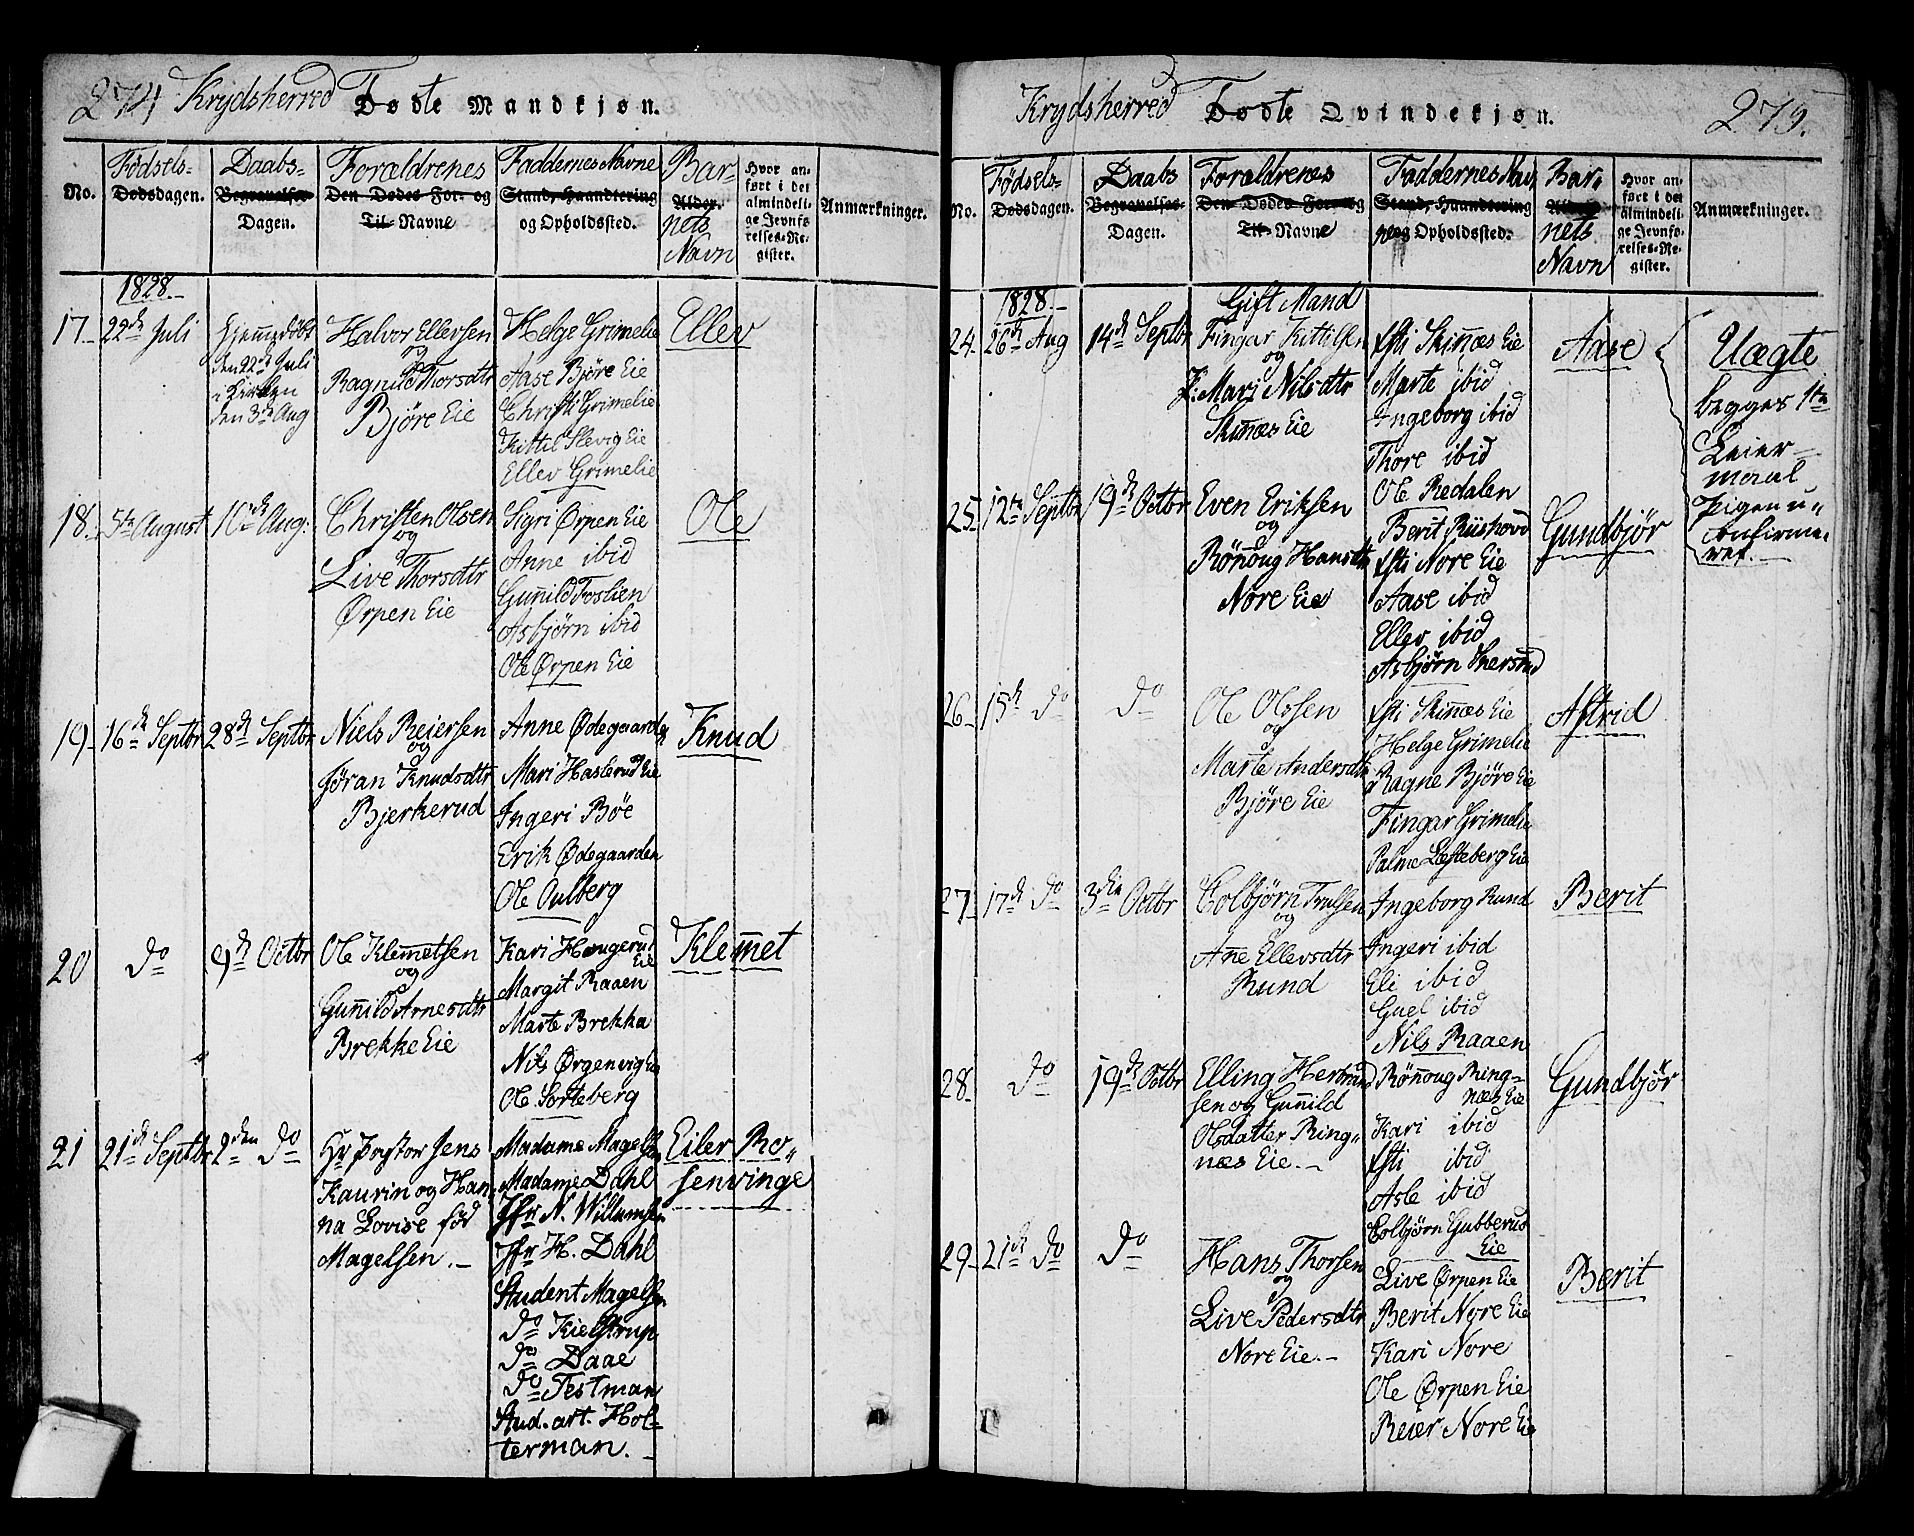 274 Krydsherred Fødte Mandkjøn.
No.
Fødsels-
Dødsdagen.
Daabs-
Begravelses-
Dagen.
Forældrenes
Den Dødes For- og
Til- Navne
Faddernes Navne
Stand, Haandtering
og Opholdssted.
Bar-
Alder.
nets
Navn
Hvor an-
ført i det
almindeli-
ge Jevnfø-
relses-Re-
gister.
Anmærkninger.
1828.
17. 22de Juli
Hjemmedøbt
den 22de Juli
i Kirken
den 3die Aug
Halvor Ellevsen
og
Ragnild Thorsdtr
Bjøre Eie
Helge Grimelie
Aase Bjøre Eie
Christi Grimelie
Kittil Slevig Eie
Ellev Grimelie
Ellev
18. 5te August 10de Aug:
Christen Olsen
og
Live Thorsdtr
Ørpen Eie
Sigri Ørpen Eie
Anne ibid
Gunild Foslien
Asbjørn ibid
Ole Ørpen Eie
Ole
19. 16de Septbr 28de Septbr
Niels Reiersen
og
Jøran Knudsdtr
Bjerkerud
Anne Ødegaarden
Mari Haslerud Eie
Ingeri Bøe
Erik Ødegaarden
Ole Aulberg
Knud
20 do 9de Octbr
Ole Klemetsen
og
Gunild Arnesdtr
Brekke Eie
Kari Haugerud
Eie
Margit Raaen
Marte Brekka
Nils Ørgenvig Eie
Ole Sorteberg
Klemet
21 21de Septbr 2den do
Hr Pastor Jens
Kaurin og Han-
na Lovise fød
Magelsen.
Madame Magelsen
Madame Dahl
Jfr N. Willumsen
Jfr H. Dahl
Student Magelsen
do Kielstrup
do Daae
do Testman
Stud. art. Hol-
terman.
Eiler Ro-
senvinge
Krydsherred Fødte Qvindekjøn. 275.
No.
Fødsels-
Dødsdagen.
Daabs
Begravelses-
Dagen.
Forældrenes
Den Dødes For- og
Til- Navne
Faddernes Nav,
Stand, Haandtering
og Opholdssted.
Bar-
Alder
nets
Navn
Hvor an-
ført i det
almindeli-
ge Jevnfø-
relses-Re-
gister.
Anmærkninger.
1828.
24. 26de Aug 14de Septbr
Gift Mand
Fingar Kittilsen
og
P: Mari Nilsdtr
Skinnes Eie
Esti Skinnes Eie
Marte ibid
Ingeborg ibid
Thore ibid
Ole Redalen
Aase
Uægte
begges 1te
Leier-
maal,
Pigen u-
confirme-
ret.
25. 12te Septbr 19de Octbr
Even Eriksen
og
Rönnoug Hansdtr
Nore Eie
Berit Riishovd
Esti Nore Eie
Aase ibid
Ellev ibid
Asbjørn Skersrud
Gundbjør
26 15de do do
Ole Olssen
og
Marte Andersdtr
Bjøre Eie
Esti Skinnes Eie
Helge Grimelie
Ragne Bjøre Eie
Fingar Grimelie
Palme Lesteberg Eie
Astrid
27 17de do 3die Octbr
Colbjørn Trulsen
og
Anne Ellevsdtr
Rund
Ingeborg Rund
Ingeri ibid
Eli ibid
Guel ibid
Nils Raaen
Berit
28. do 19de Octbr
Elling Herbrand
sen og Gunild
Olsdatter Ring-
næs Eie.
Rönnoug Ring-
næs Eie
Kari ibid
Esti ibid
Asle ibid
Colbjørn Gubberud
Eie
Gundbjør
29. 21de do do
Hans Thorsen
og
Live Pedersdtr
Nore Eie.
Live Ørpen Eie
Berit Nore Eie
Kari Nore
Ole Ørpen Eie
Reier Nore Eie
Berit